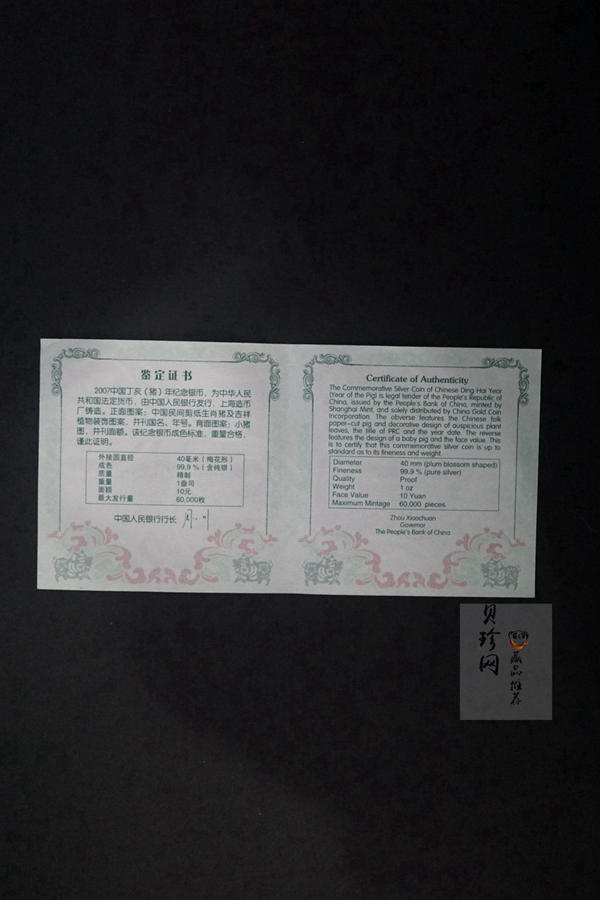 鉴定证书
2007中国丁亥（猪）年纪念银币，为中华人民
共和国法定货币，由中国人民银行发行，上海造币
厂铸造。正面图案：中国民间剪纸生肖猪及吉祥
植物装饰图案，并刊国名、年号。背面图案：小猪
图，并刊面额。该纪念银币成色标准，重量合格，
谨此证明。
外接圆直径 40毫米（梅花形）
成色 99.9％（含纯银）
质量 精制
重量 1盎司
面额 10元
最大发行量 60,000枚
中国人民银行行长
Certificate of Authenticity
The Commemorative Silver Coin of Chinese Ding Hai Year
(Year of the Pig) is legal tender of the People's Republic of
China, issued by the People's Bank of China, minted by
Shanghai Mint, and solely distributed by China Gold Coin
Incorporation. The obverse features the Chinese folk
paper-cut pig and decorative design of auspicious plant
leaves, the title of PRC and the year date. The reverse
features the design of a baby pig and the face value. This
is to certify that this commemorative silver coin is up to
standard as to its fineness and weight.
Diameter 40 mm (plum blossom shaped)
Fineness 99.9 % (pure silver)
Quality Proof
Weight 1 oz
Face Value 10 Yuan
Maximum Mintage 60,000 pieces
Zhou Xiaochuan
Governor
The People's Bank of China
贝珍网
藏品推荐